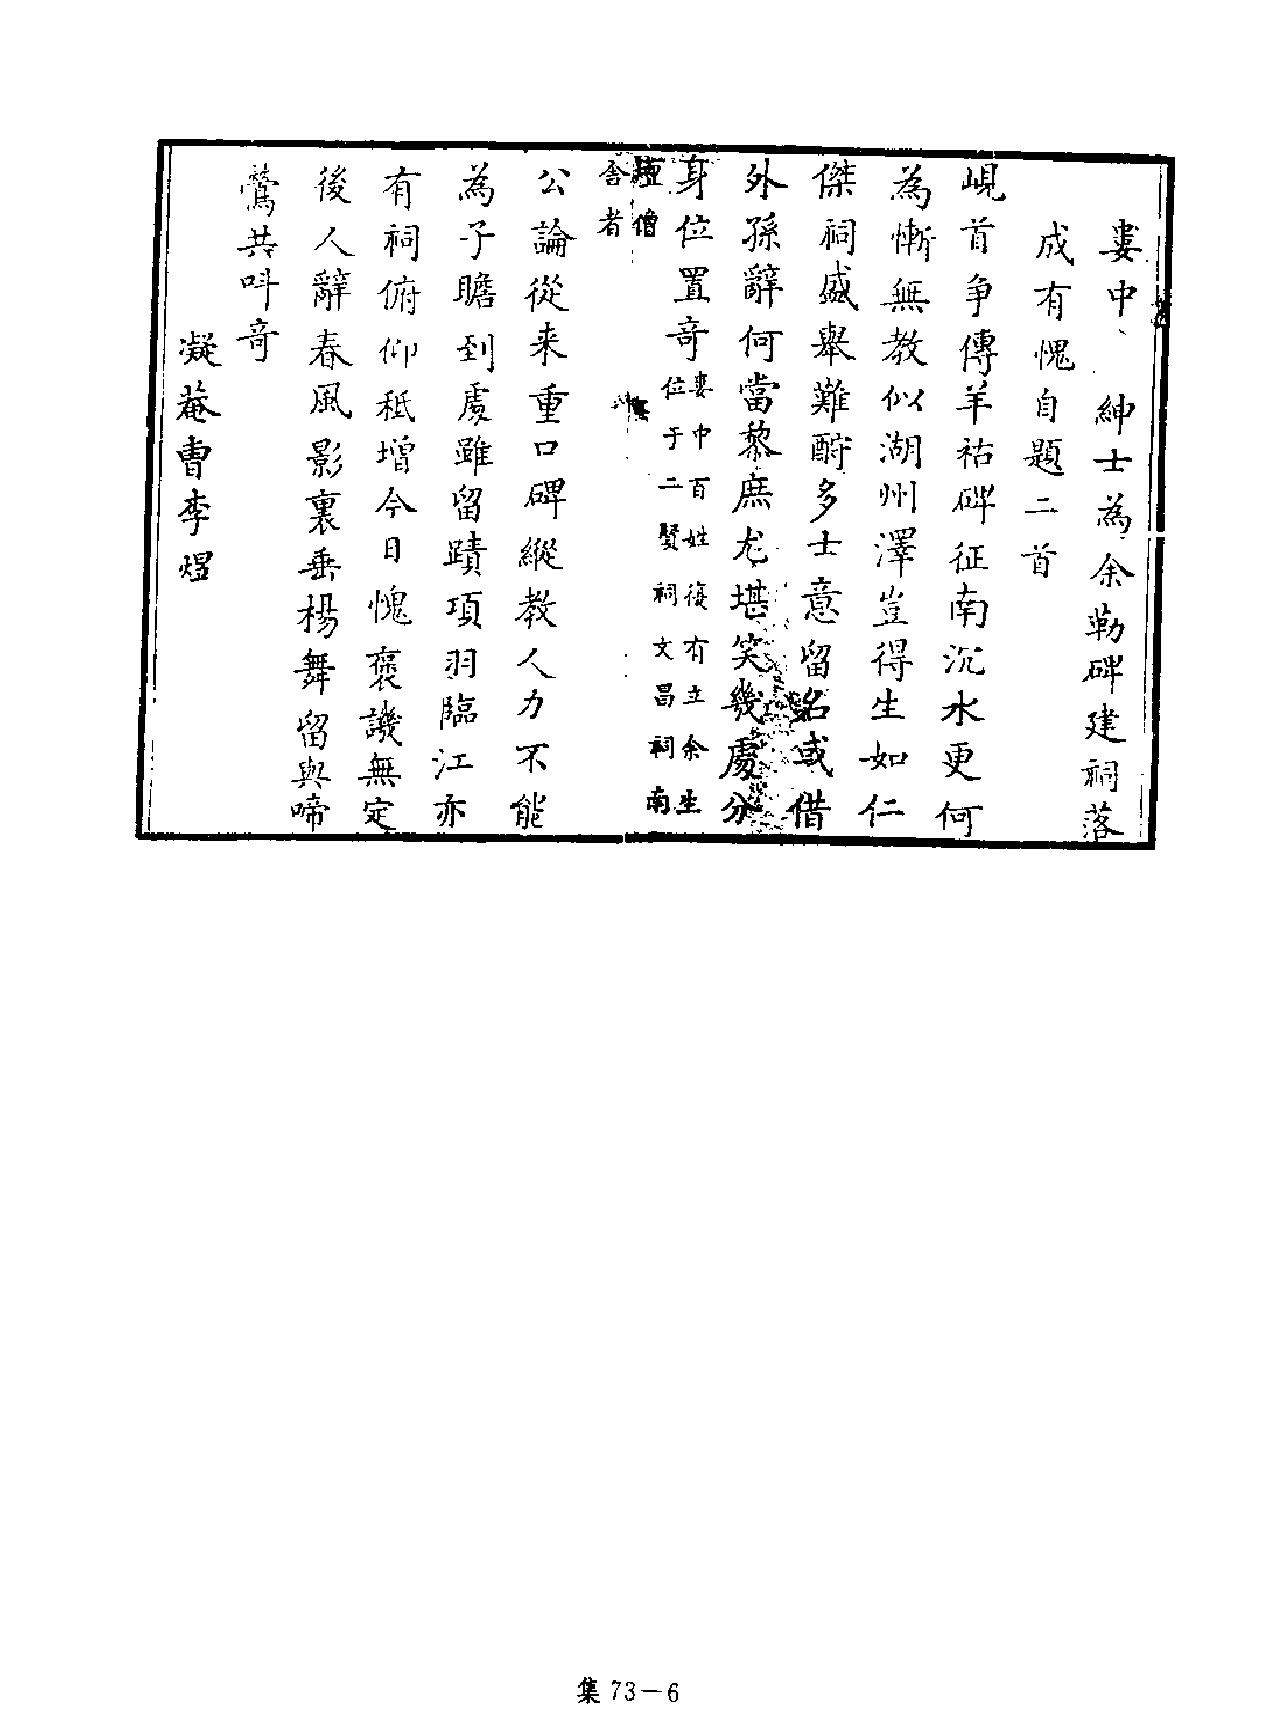 婁中紳士為余勒碑建祠落
成有愧自題二首
峴首争傳羊祜碑征南沉水更何
為慚無教似湖州澤豈得生如仁
傑祠盛舉難酧多士意留名或借
外孫辭何當黎庶尤堪笑幾處分
身位置奇
婁中百姓復有立余生
位于二賢祠文昌祠南
壇僧
舍者
公論從来重口碑縱教人力不能
為子瞻到處雖留蹟項羽臨江亦
有祠俯仰秖增今日愧褒譏無定
後人辭春風影裏垂楊舞留與啼
鶯共呌竒
凝菴曹李煜
集73－6